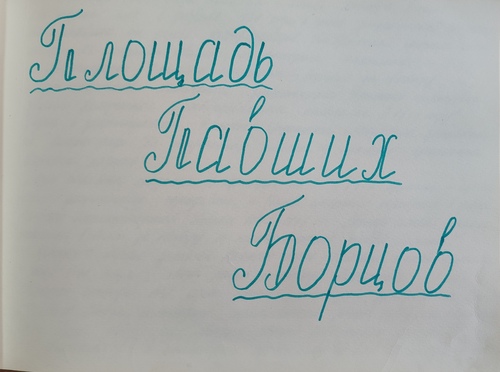 Площадь
Павших
Борцов